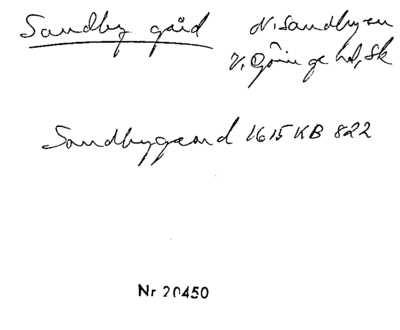 Sandby gård
N. Sandby sn
V. Göinge hd, Sk
Sandbygaard 1615 KB 822
Nr 20450